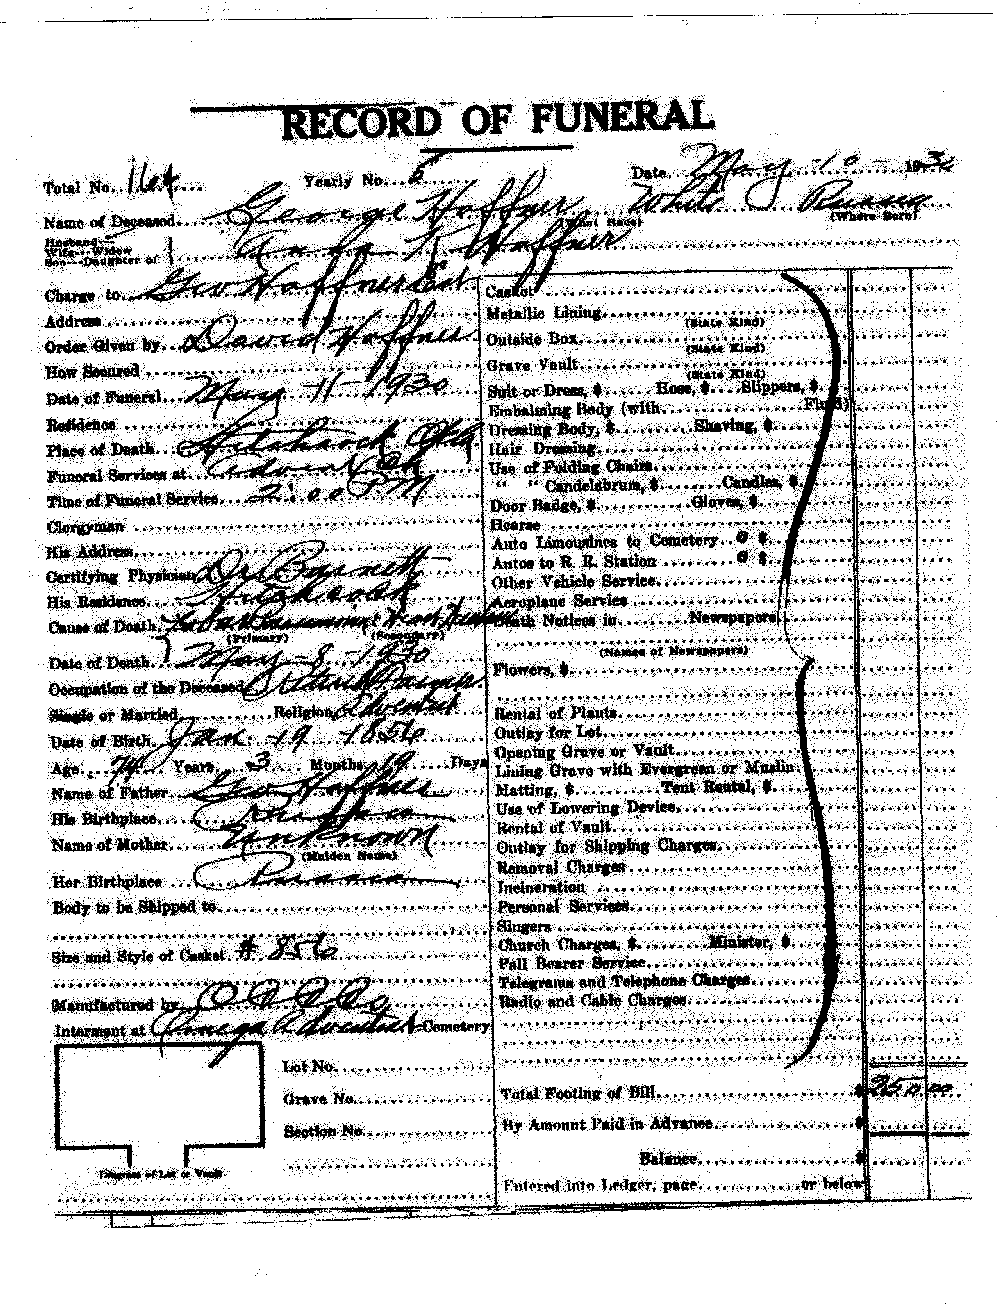 RECORD OF FUNERAL
Total No. 164 Yearly No. 5 Date May - 10 - 1930
Name of Deceased George Hoffner White Russia
(Where Born)
Husband
Wife Widow
Son Daughter of Hoffner
Charge to Geo Hoffner Est.
Address
Order Given by David Hoffner
How Secured
Date of Funeral May - 11 - 1930
Residence
Place of Death Hitchcock Okla
Funeral Services at
Time of Funeral Service 2:00 PM
Clergyman
His Address
Certifying Physician Dr Barnett
His Residence Hitchcock
Cause of Death
(Primary) (Secondary)
Date of Death May - 8 - 1930
Occupation of the Deceased Retired Farmer
Single or Married Religion Advent
Date of Birth Jan. 19 - 1856
Age 74 Years 3 Months 19 Days
Name of Father Geo Hoffner
His Birthplace Russia
Name of Mother Unknown
(Maiden Name)
Her Birthplace Russia
Body to be Shipped to
Size and Style of Casket # 856
Manufactured by
Interment at Omega Adventist Cemetery
Lot No.
Grave No.
Section No.
Diagram of Lot or Vault
Casket
Metallic Lining
(State Kind)
Outside Box
(State Kind)
Grave Vault
(State Kind)
Suit or Dress, $ Hose, $ Slippers, $
Embalming Body (with Fluid)
Dressing Body, $ Shaving, $
Hair Dressing
Use of Folding Chairs
" " Candelabrum, $ Candles, $
Door Badge, $ Gloves, $
Hearse
Auto Limousines to Cemetery @ $
Autos to R. R. Station @ $
Other Vehicle Service
Aeroplane Service
Death Notices in Newspapers
(Names of Newspapers)
Flowers, $
Rental of Plants
Outlay for Lot
Opening Grave or Vault
Lining Grave with Evergreen or Muslin
Matting, $ Tent Rental, $
Use of Lowering Device
Rental of Vault
Outlay for Shipping Charges
Removal Charges
Incineration
Personal Services
Singers
Church Charges, $ Minister, $
Pall Bearer Service
Telegrams and Telephone Charges
Radio and Cable Charges
Total Footing of Bill $ 250.00
By Amount Paid in Advance $
Balance $
Entered into Ledger, page or below